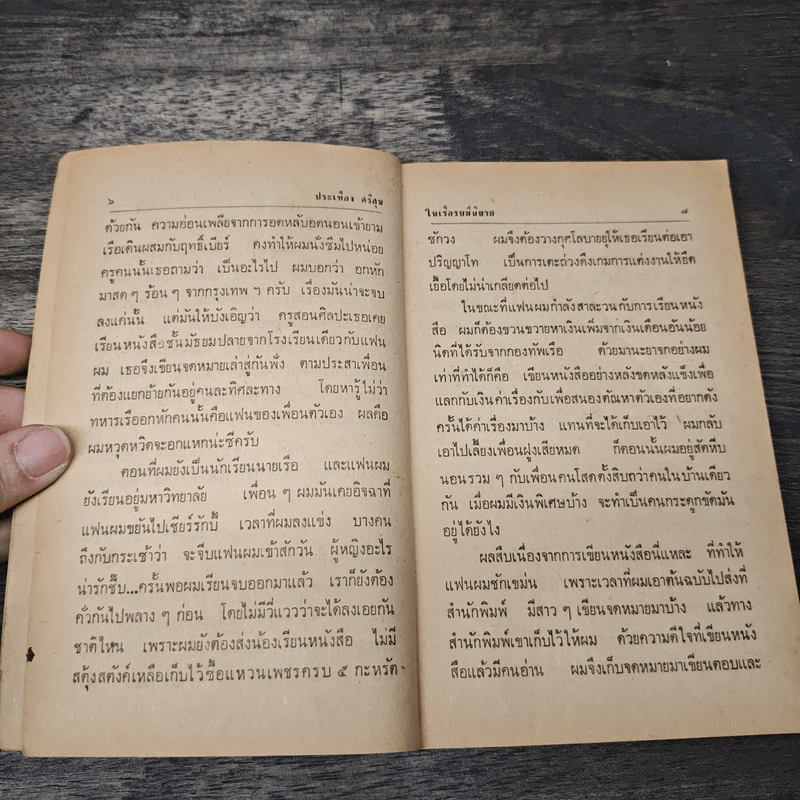 ๖ ประเทือง ศรีสุข
ด้วยกัน ความอ่อนเพลียจากการอดหลับอดนอนเข้ายาม
เรือเดินผสมกับฤทธิ์เบียร์ คงทำให้ผมนั่งซึมไปหน่อย
ครูคนนั้นเธอถามว่า เป็นอะไรไป ผมบอกว่า อกหัก
มาสดๆ ร้อนๆ จากกรุงเทพ ฯ ครับ เรื่องมันน่าจะจบ
ลงแค่นั้น แต่มันให้บังเอิญว่า ครูสอนศิลปะเธอเคย
เรียนหนังสือชั้นมัธยมปลายจากโรงเรียนเดียวกับแฟน
ผม เธอจึงเขียนจดหมายเล่าสู่กันฟัง ตามประสาเพื่อน
ที่ต้องแยกย้ายกันอยู่คนละทิศละทาง โดยหารู้ไม่ว่า
ทหารเรืออกหักคนนั้นคือแฟนของเพื่อนตัวเอง ผลคือ
ผมหวุดหวิดจะอกแหกน่ะซีครับ
ตอนที่ผมยังเป็นนักเรียนนายเรือ และแฟนผม
ยังเรียนอยู่มหาวิทยาลัย เพื่อน ๆ ผมมันเคยอิจฉาที่
แฟนผมขยันไปเชียร์รักบี้ เวลาที่ผมลงแข่ง บางคน
ถึงกับกระเซ้าว่า จะจีบแฟนผมเข้าสักวัน ผู้หญิงอะไร
น่ารักชิ๊บ...ครั้นพอผมเรียนจบออกมาแล้ว เราก็ยังต้อง
คั่วกันไปพลาง ๆ ก่อน โดยไม่มีวี่แววว่าจะได้ลงเอยกัน
ชาติไหน เพราะผมยังต้องส่งน้องเรียนหนังสือ ไม่มี
สตุ้งสตังค์เหลือเก็บไว้ซื้อแหวนเพชรครบ ๕ กะหรัต
ในเรือรบมีนิยาย ๗
ซักวง ผมจึงต้องวางกุศโลบายยุให้เธอเรียนต่อเอา
ปริญญาโท เป็นการเตะถ่วงดึงเกมการแต่งงานให้ยืด
เยื้อโดยไม่น่าเกลียดต่อไป
ในขณะที่แฟนผมกำลังสาละวนกับการเรียนหนัง
สือ ผมก็ต้องขวนขวายหาเงินเพิ่มจากเงินเดือนอันน้อย
นิดที่ได้รับจากกองทัพเรือ ด้วยมานะยาจกอย่างผม
เท่าที่ทำได้ก็คือ เขียนหนังสืออย่างหลังขดหลังแข็งเพื่อ
แลกกับเงินค่าเรื่องกับเพื่อสนองตัณหาตัวเองที่อยากดัง
ครั้นได้ค่าเรื่องมาบ้าง แทนที่จะได้เก็บเอาไว้ ผมกลับ
เอาไปเลี้ยงเพื่อนฝูงเสียหมด ก็ตอนนั้นผมอยู่สัตหีบ
นอนรวม ๆ กับเพื่อนคนโสดตั้งสิบกว่าคนในบ้านเดียว
กัน เมื่อผมมีเงินพิเศษบ้าง จะทำเป็นคนกระดูกขัดมัน
อยู่ได้ยังไง
ผลสืบเนื่องจากการเขียนหนังสือนี่แหละ ที่ทำให้
แฟนผมชักเขม่น เพราะเวลาที่ผมเอาต้นฉบับไปส่งที่
สำนักพิมพ์ มีสาว ๆ เขียนจดหมายมาบ้าง แล้วทาง
สำนักพิมพ์เขาเก็บไว้ให้ผม ด้วยความดีใจที่เขียนหนัง
สือแล้วมีคนอ่าน ผมจึงเก็บจดหมายมาเขียนตอบและ